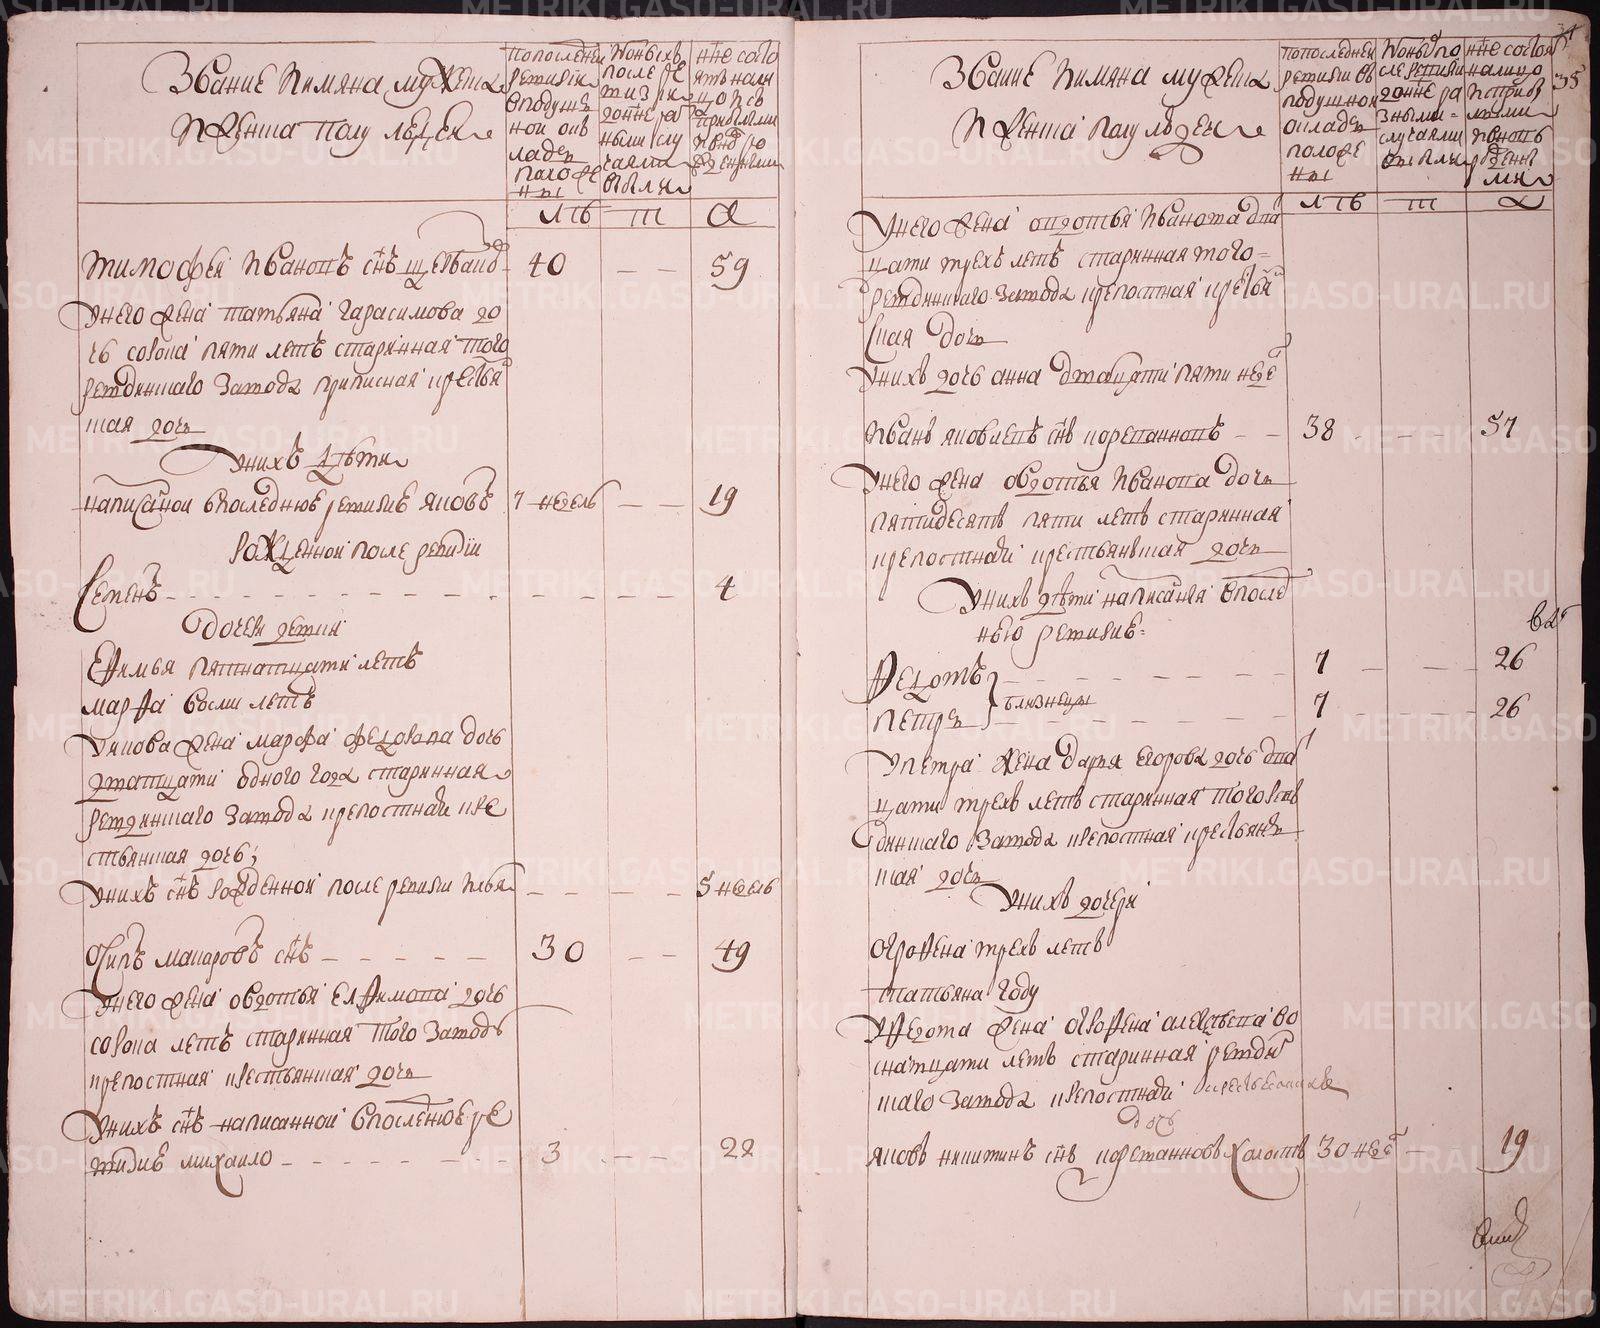 Звание и имяна мужеска
и женска полу людей
по последней
ревизии
в подушн
ной ок
ладъ
положе
ны
из оныхъ
после ре
визи
разне ра
ными слу
чаями
выбыли
ныне состо
ятъ нали
цо и съ
прибылыми
и вновь ро
жденными
летъ
Тимофей Ивановъ снъ 40 — — 59
у него жена Татьяна Гарасимова до
чь сорока пяти летъ старинная того
ревдинского завода приписная крестья
нская дочь
у нихъ дети
написаной в последнюю ревизию Яковъ 7 недель — — 19
рожденной после ревизии
Семенъ 4
дочери девки
Ефимья пятнатцати летъ
Марфа восми летъ
у Якова жена Марфа Федорова дочь
дватцати одного года старинная
ревдинского завода крепостная кре
стьянская дочь;
у нихъ снъ рожденной после ревизии Илья 5 недель
Осипъ Макаровъ снъ 30 — — 49
у него жена Овдотья Ефимова дочь
сорока летъ старинная того завода
крепостная крестьянская дочь
у нихъ снъ написанной в последнюю ре
визию Михайло 3 — — 22
35
Звание и имяна мужеска
и женска полу людей
по последней
ревизии въ
подушной
окладъ
положе
ны
из оныхъ по
сле ревизии
разне ра
зными
случаями
выбыли
ныне состоя
налицо
и с прибы
лыми
и вновь
рождены
ми
летъ
у него жена Овдотья Иванова два
цати трехъ летъ старинная того
ревдинского завода крепостная крестья
нская дочь
у нихъ дочь Анна дватцати пяти неде
Иванъ Яковлевъ снъ Коревановъ 38 — — 57
у него жена Овдотья Иванова дочь
пятидесятъ пяти летъ старинная
крепостная крестьянская дочь
у нихъ дети написания в послед
нею ревизию:
Федотъ 7 — — 26
близнецы
Петръ 7 — — 26
у Петра жена Дарья Егорова дочь два
цати трехъ летъ старинная того рев
динского завода крепостная крестьян
кая дочь
у нихъ дочери
Огрофена трехъ летъ
Татьяна году
у Федота жена Огрофена Алексеева во
снатцати летъ старинная ревдин
ского завода крепостная крестьянская
дочь
Яковъ Никитинъ снъ Коревановъ холостъ 30 неде — 19
METRIKI.GASO-URAL.RU